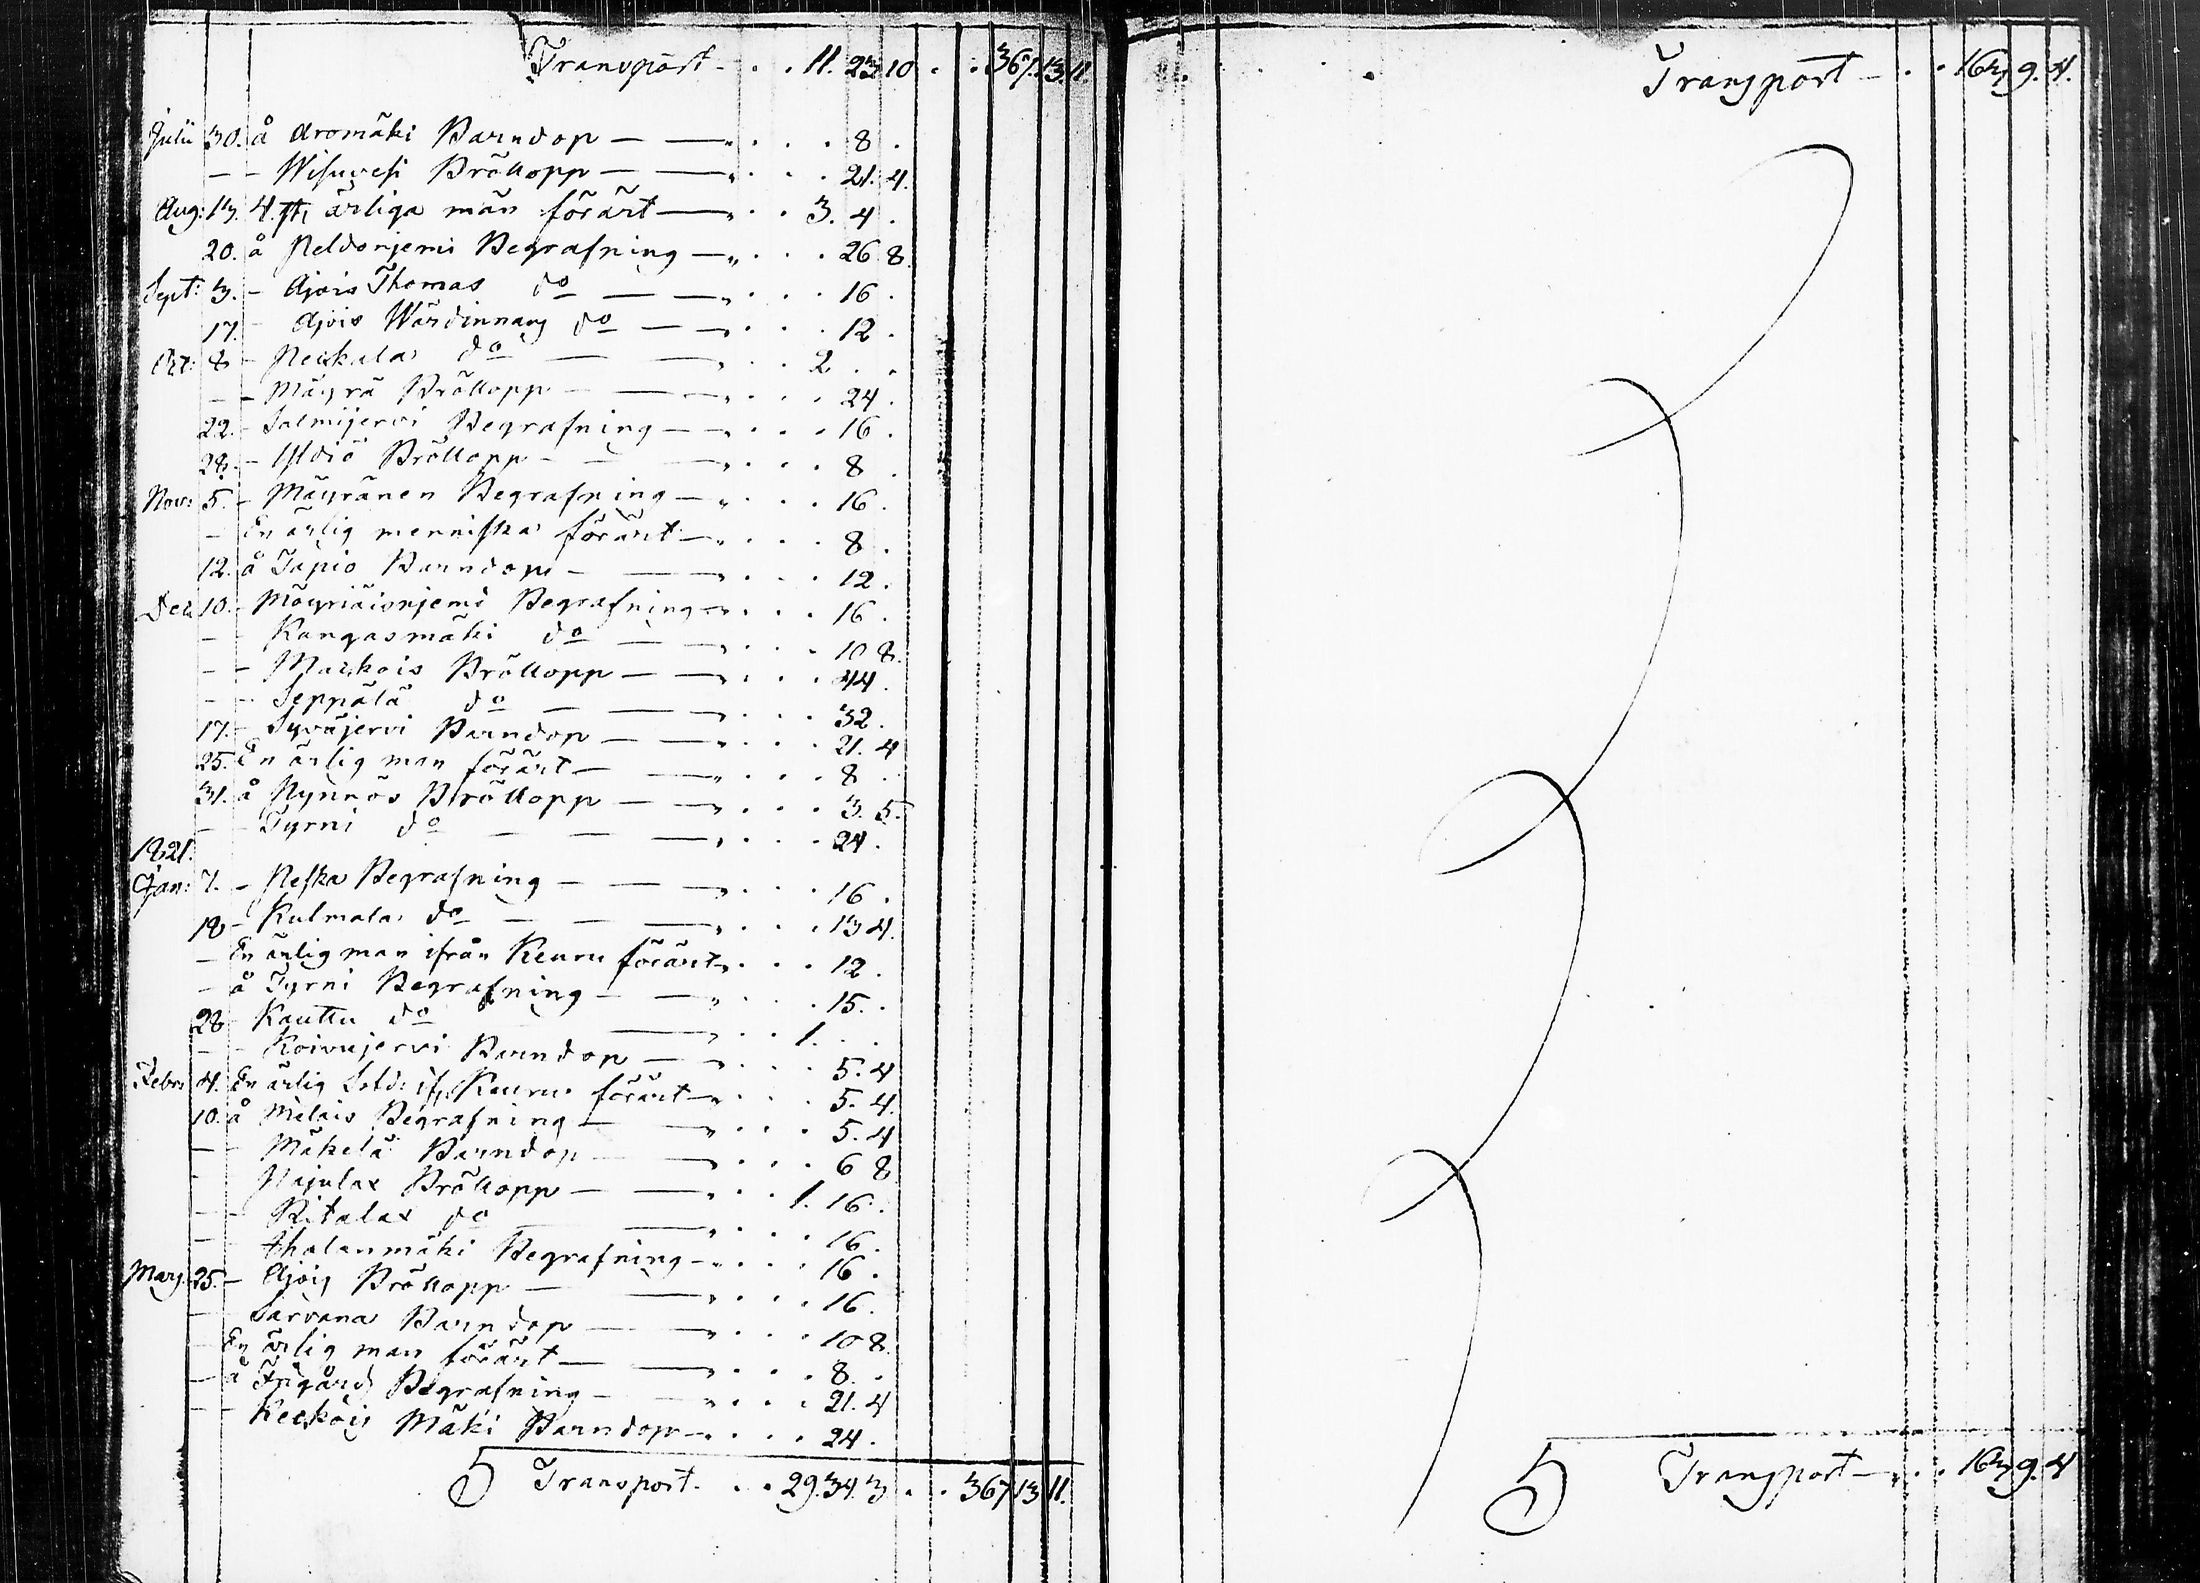 Transport - . . 11. 23 10 . . 367. 13. 11
Julii 30. å Aromäki Barndop — — „ . . . 8 .
— - Wisuvesi Bröllopp — — „ . . . 21. 4.
Aug: 13. 4. st. ärliga män förärt — „ . . 3. 4 .
20. å Peldonjemi Begrafning — „ . . . 26 8.
Sept: 3. - Ajois Thomas do — — „ . . . 16 .
17. - Ajois Wärdinnans do — — „ . . . 12 .
Oct: 8 - Peckala do — — „ . . 2 . .
— - Mäyrä Bröllopp — — „ . . . 24 .
22. - Salmijervi Begrafning — — „ . . . 16 .
28. - Yldiö Bröllopp - — — „ . . . 8 .
Nov: 5. - Mäyränen Begrafning — „ . . . 16 .
— En ärlig menniska förärt — „ . . . 8 .
12. å Tapio Barndop — — „ . . . 12 .
Dec. 10. - Möyriäisnjemi Begrafning — „ . . . 16 .
— - Kangasmäki do — — „ . . . 10 8.
— - Markois Bröllopp — — „ . . . 44 .
— - Seppälä do — — „ . . . 32 .
17. - Syväjervi Barndop — — „ . . . 21. 4
25. En ärlig man förärt — — „ . . . 8 .
31. å Nynnös Bröllopp — — „ . . . 3. 5.
— - Tyrni do — — — „ . . . 24 .
1821.
Jan: 7. - Peska Begrafning — — „ . . . 16 .
18 - Kulmala do — — — „ . . . 13 4.
— En ärlig man ifrån Keuru förärt „ . . . 12 .
- å Tyrni Begrafning — — „ . . . 15. .
28 - Kauttu do — „ . . 1. . .
— - Koivujervi Barndop — — „ . . . 5. 4
Febr: 4. En ärlig Sold: ifr. Keuru förärt — „ . . . 5. 4.
10. å Melais Begrafning — — „ . . . 5. 4
— - Mäkelä Barndop — — „ . . . 6 8
- Pajulax Bröllopp — — „ . . 1. 16 .
— - Ritalax do — „ . . . 16 .
— Ahalanmäki Begrafning — „ . . . 16 .
Mars. 25. - Ajois Bröllopp — — „ . . . 16 .
— Sarvana Barndop — — „ . . . 10 8.
— En ärlig man förärt — — „ . . . 8. .
— å Begrafning — — „ . . . 21. 4
— - Keckois Mäki Barndop — „ . . . 24 .
5 Transport. . . 29. 34. 3 . . 367 13 11.
Transport — . . 167 9. 4.
5 Transport — „ . . 167 9. 4